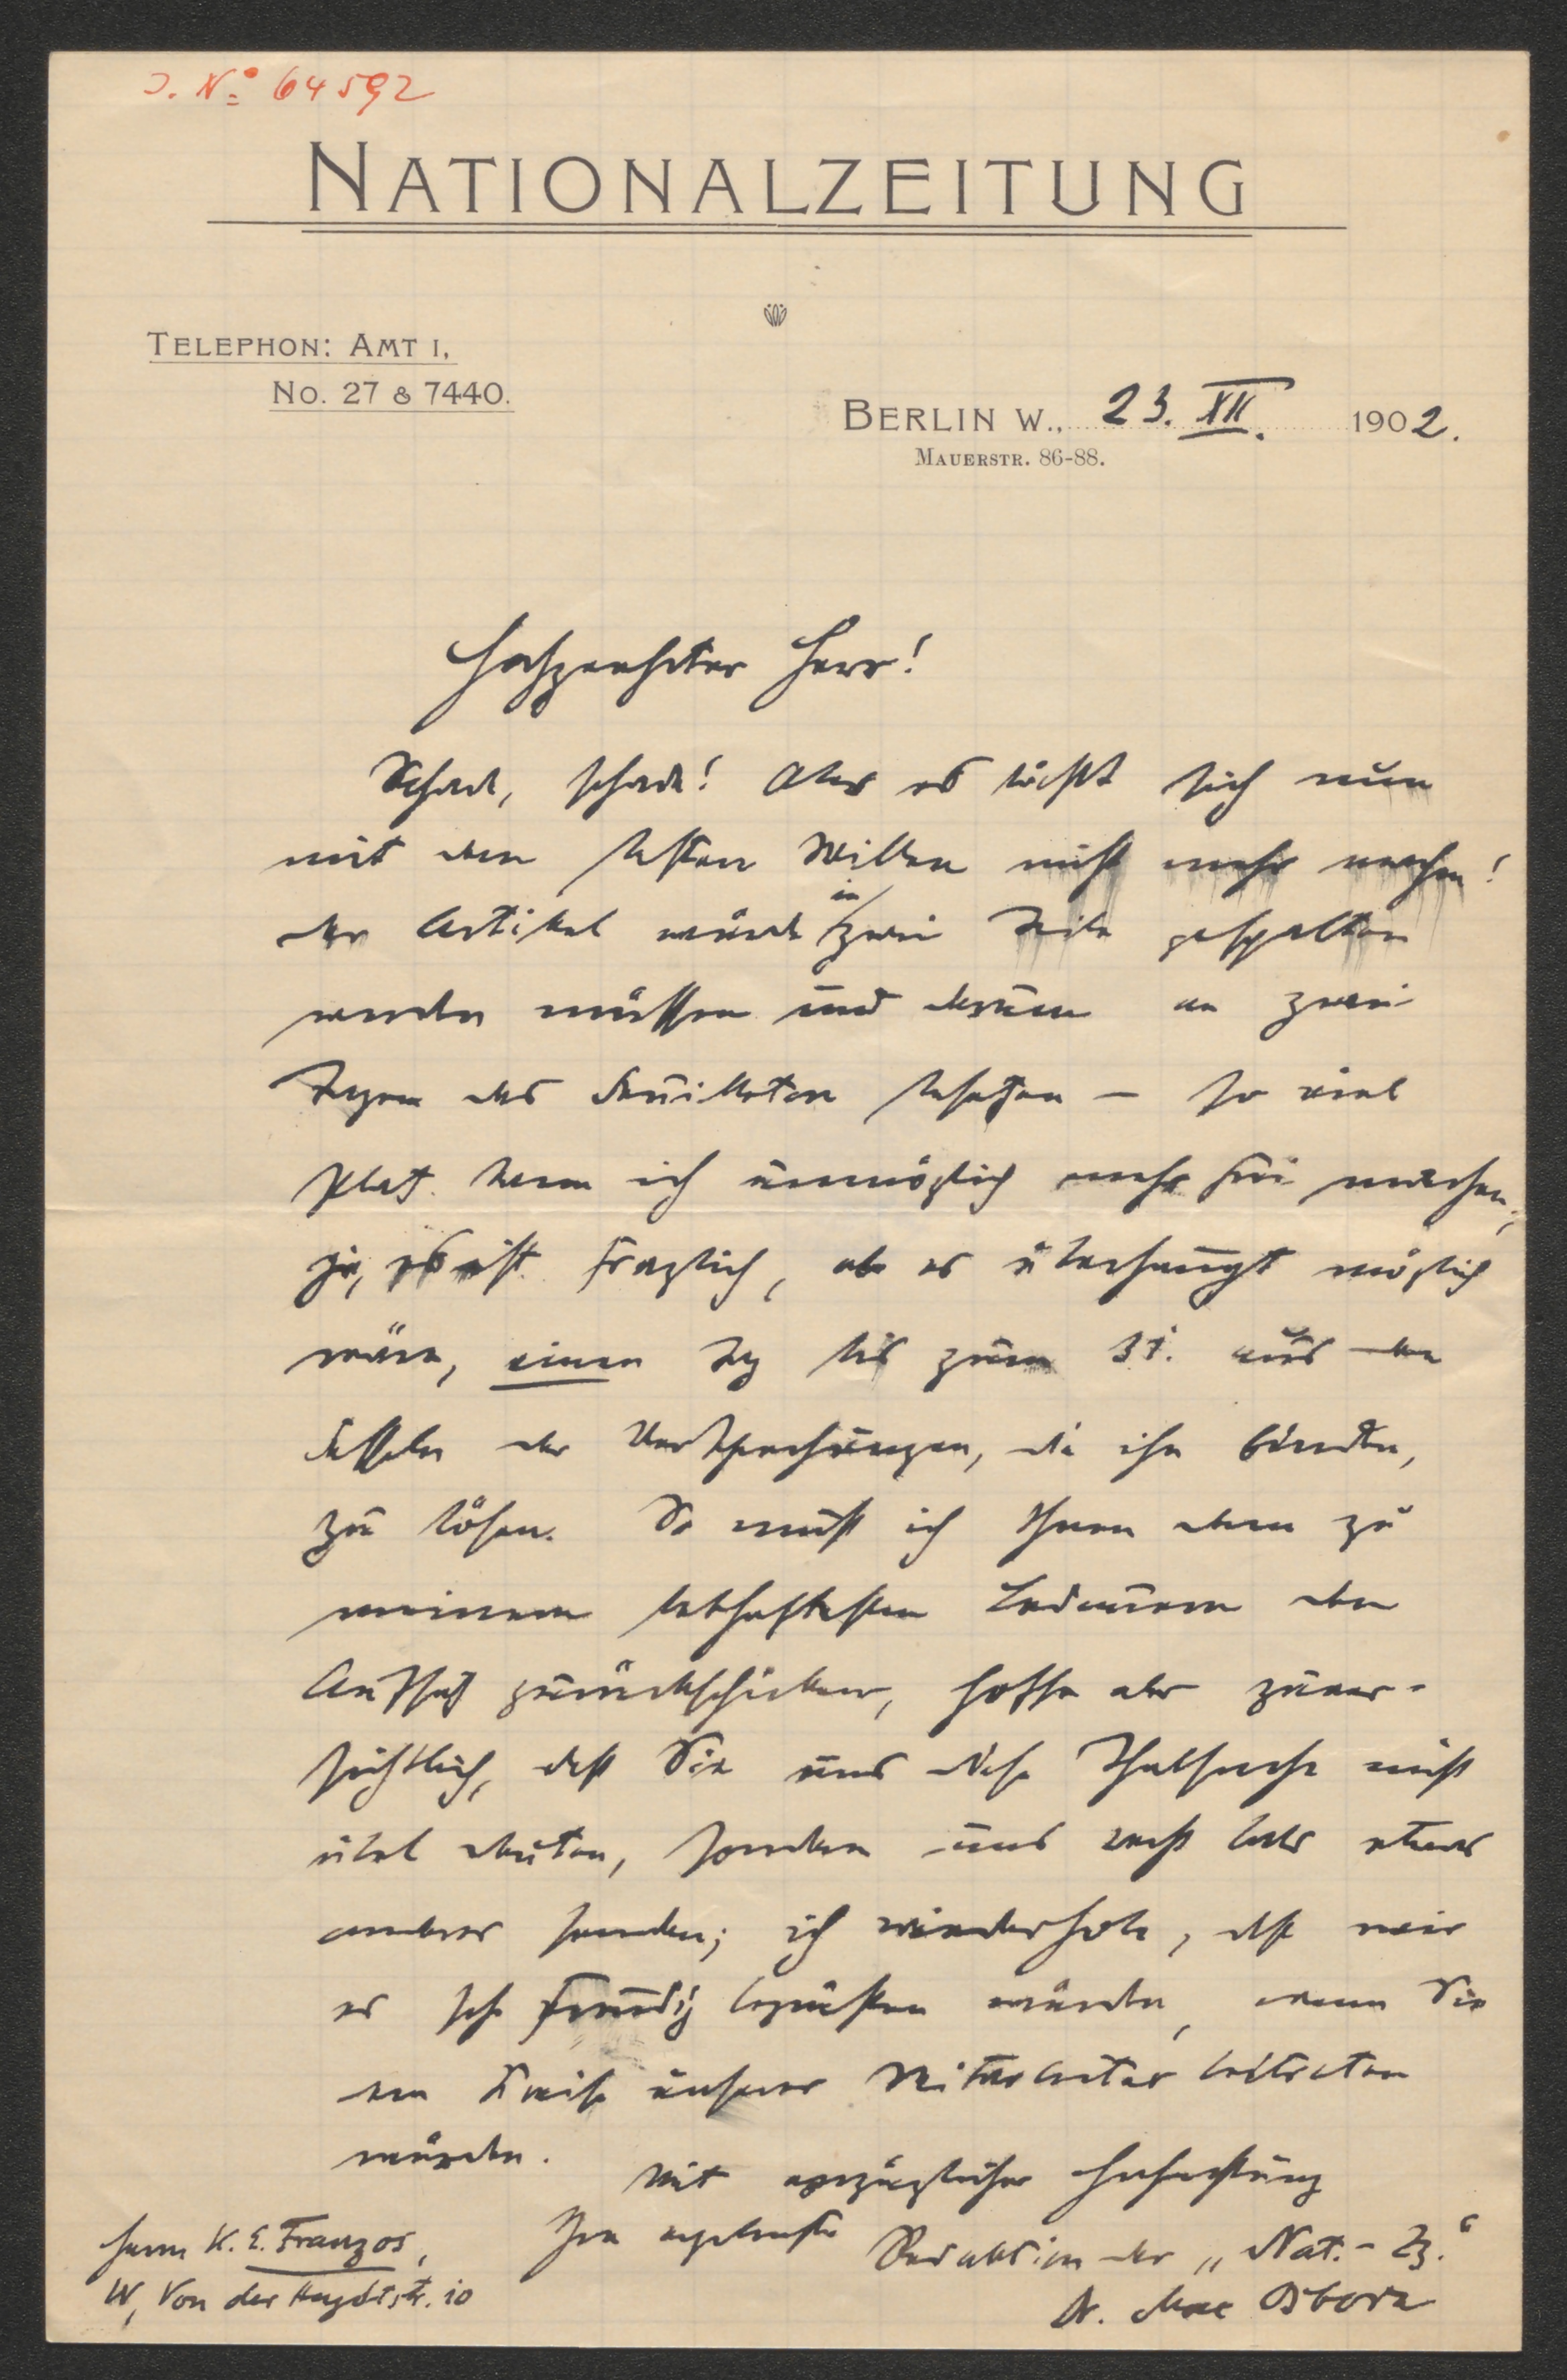 J. No 64592
NATIONALZEITUNG
TELEPHON: AMT I,
No. 27 & 7440.
BERLIN W., 23. XII. 1902.
MAUERSTR. 86-88.
Hochgeehrter Herr!
Schade, schade! Aber es läßt sich nun
mit dem besten Willen nicht mehr machen!
Der Artikel würde in zwei Teile gespalten
werden müssen und darum an zwei
Tagen das Feuilleton besetzen – so viel
Platz kann ich unmöglich mehr frei machen;
ja, es ist fraglich, ob es überhaupt möglich
wäre, einen Tag bis zum 31. aus den
Fesseln der Versprechungen, die ihn binden,
zu lösen. So muß ich Ihnen denn zu
meinem lebhaftesten Bedauern den
Aufsatz zurückschicken, hoffe aber zuver-
sichtlich, daß Sie uns diese Thatsache nicht
übel deuten, sondern uns recht bald etwas
anderes senden; ich wiederhole, daß wir
es sehr freudig begrüßen würden, wenn Sie
dem Kreise unserer Mitarbeiter beitreten
würden.
Mit vorzüglicher Hochachtung
Ihre ergebenste
Redaktion der „Nat.-Zg."
Dr. Max Osborn
Herrn K. E. Franzos,
W, Von der Heydtstr. 10